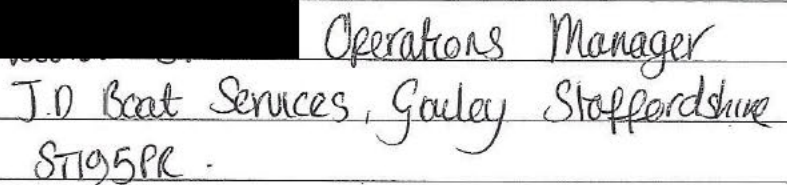 Operations Manager
J.D Boat Services, Gailey Staffordshire
ST195PR.